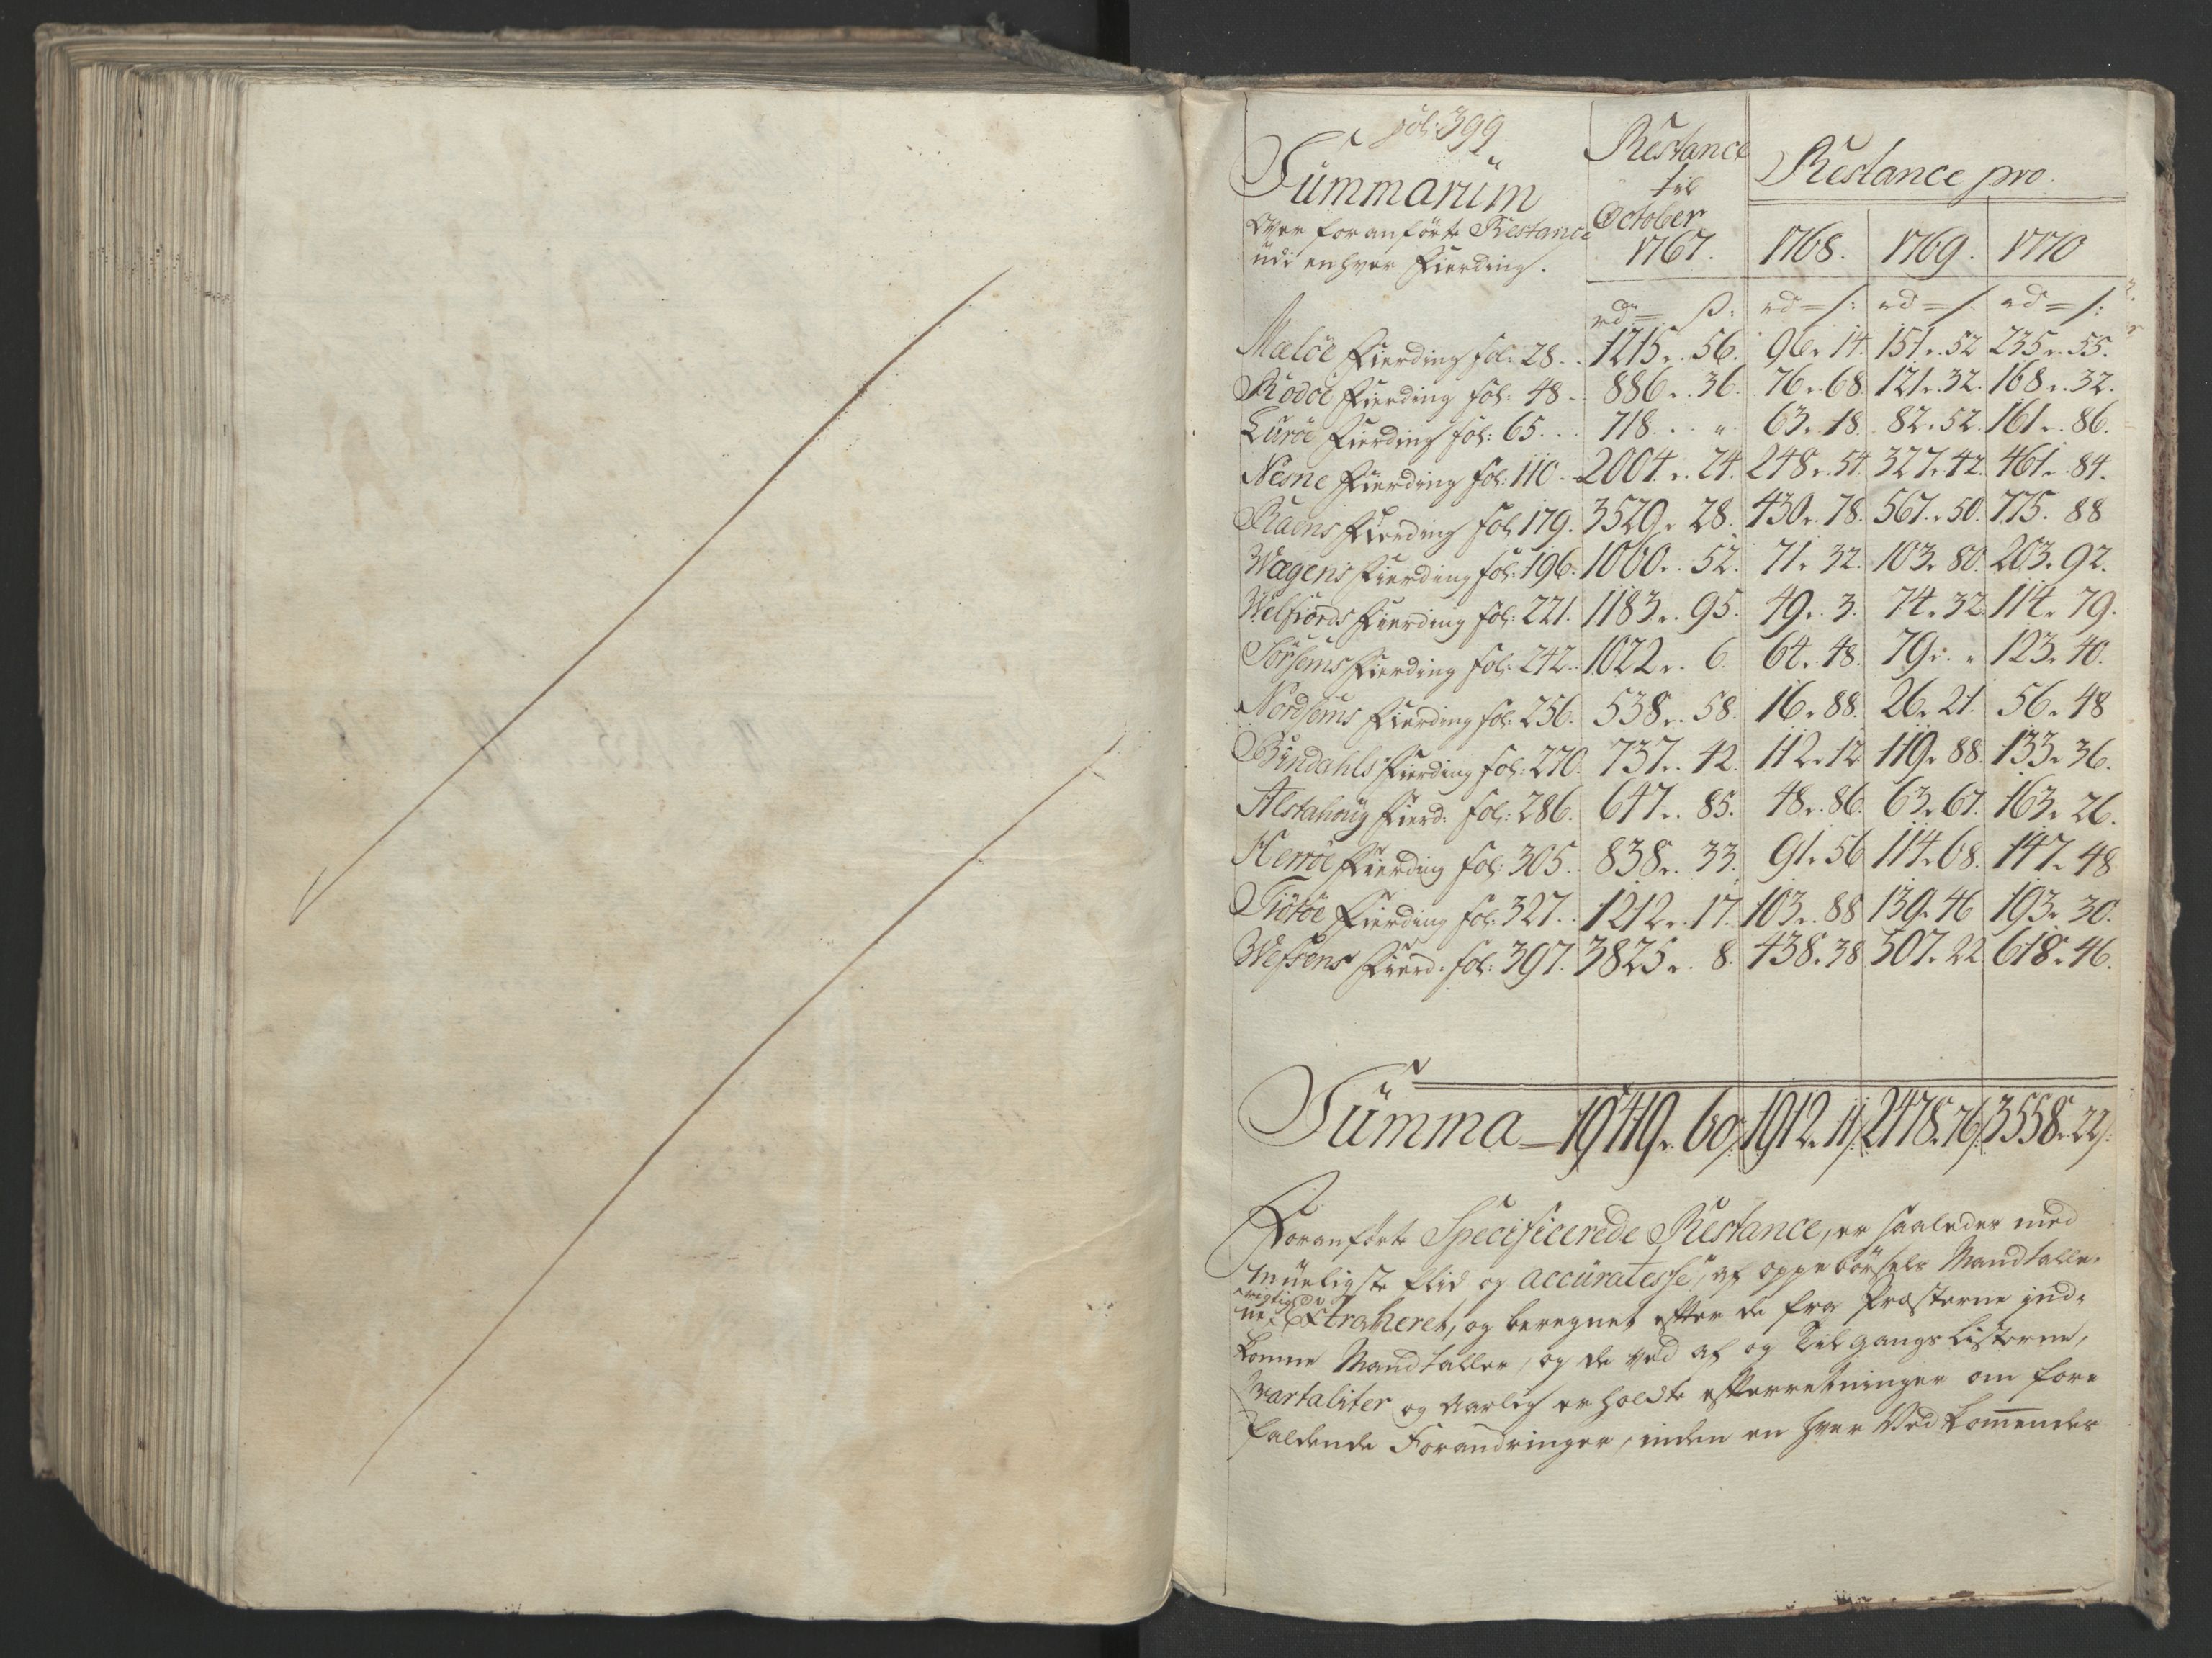 fol: 399
Summarum
Over foranförte Restance
udi enhver Fierding.
Restance
til
October
1767.
Restance pro.
1768. 1769. 1770
rd = ß: rd = ß: rd = ß: rd = ß:
Meløe Fierding fol: 28. 1215.. 56. 96. 14. 151.. 52 235.. 55.
Rodøe Fierding fol: 48 886.. 36. 76.. 68. 121.. 32. 168.. 32.
Lurøe Fierding fol: 65... 718.. " 63. 18. 82. 52. 161.. 86.
Nesne Fierding fol: 110 2004.. 24. 248.. 54. 327. 42. 461.. 84.
Raens Fierding fol 179. 3529. 28. 430. 78. 567.. 50. 775. 88
Wægens Fierding fol: 196. 1060.. 52. 71. 32. 103. 80. 203. 92.
Welfiords Fierding fol: 221. 1183.. 95. 49.. 3. 74. 32 114. 79.
Sørsems Fierding fol: 242.. 1022.. 6. 64. 48. 79.. " 123. 40.
Nordsems Fierding fol: 256. 538.. 58. 16. 88. 26. 21. 56. 48
Bindahls Fierding fol: 270. 737.. 42. 112. 12 119. 88. 133. 36.
Alstahoug Fierd: fol: 286. 647.. 85. 48.. 86. 63. 67. 163. 26.
Herrøe Fierding fol: 305.. 838.. 33. 91. 56 114. 68. 147. 48
Tiøtøe Fierding fol. 327.. 1212.. 17. 103.. 88 139. 46 193. 30.
Wefsens Fierd. fol: 397. 3825.. 8. 438. 38 507. 22 618. 46.
Summa 19419. 60. 1912. 11 2478. 76 3558. 22
Foranförte Specificerede Restance, er saaledes med
mueligste flid og accuratesse, af oppebörsels Mandtalle-
rigtig
ne Extraheret, og beregnet efter de fra Præsterne ind-
komne Mandtaller, og de ved af og Tilgangs Listerne,
Qvartaliter og Aarlig erholdte efterretninger om fore
faldende Forandringer, inden en hver Vedkommendes